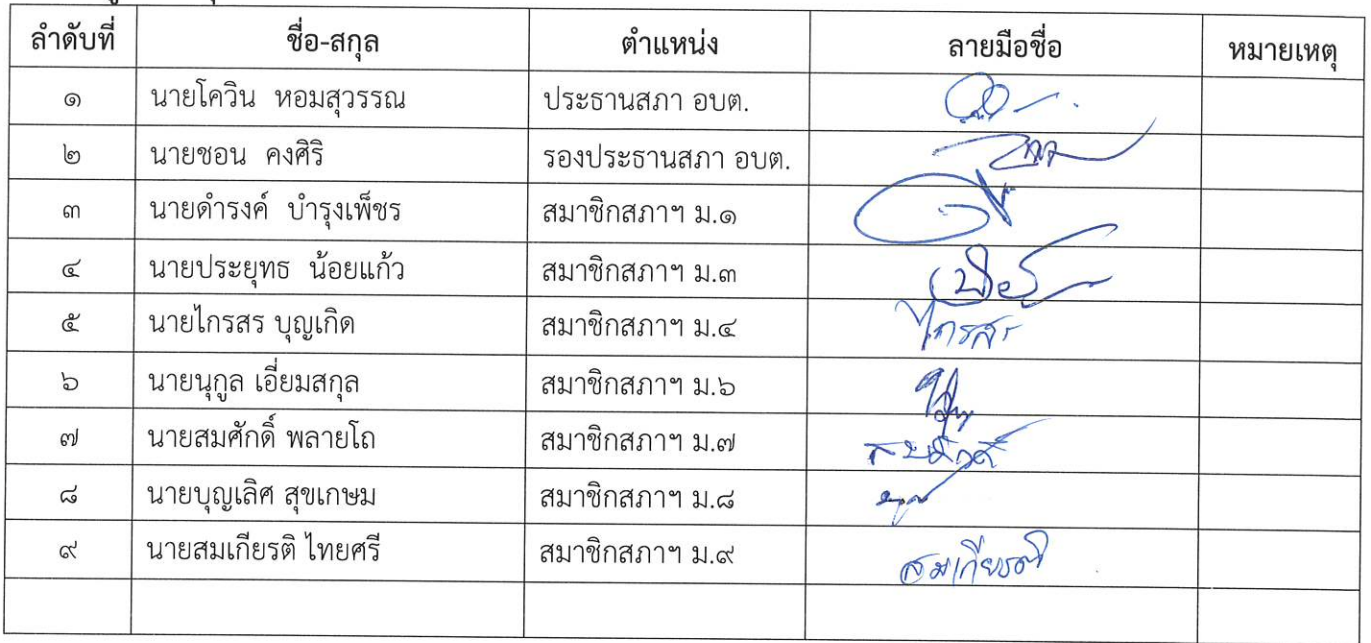 ลำดับที่ ชื่อ-สกุล ตำแหน่ง ลายมือชื่อ หมายเหตุ
๑ นายโควิน หอมสุวรรณ ประธานสภา อบต.
๒ นายชอน คงศิริ รองประธานสภา อบต.
๓ นายดำรงค์ บำรุงเพ็ชร สมาชิกสภาฯ ม.๑
๔ นายประยุทธ น้อยแก้ว สมาชิกสภาฯ ม.๓
๕ นายไกรสร บุญเกิด สมาชิกสภาฯ ม.๔ ไกรสร
๖ นายนุกูล เอี่ยมสกุล สมาชิกสภาฯ ม.๖
๗ นายสมศักดิ์ พลายโถ สมาชิกสภาฯ ม.๗ สมศักดิ์
๘ นายบุญเลิศ สุขเกษม สมาชิกสภาฯ ม.๘
๙ นายสมเกียรติ ไทยศรี สมาชิกสภาฯ ม.๙ สมเกียรติ